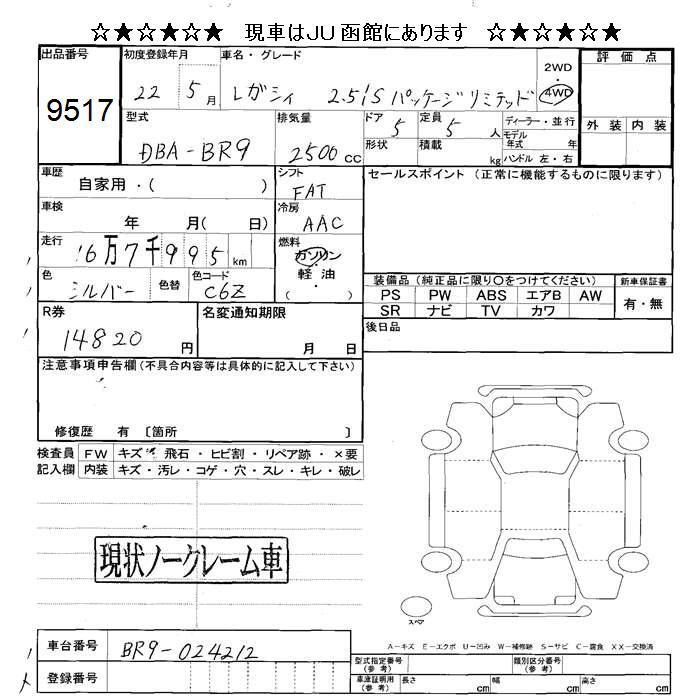 ☆★☆★☆★ 現車はJU函館にあります ☆★☆★☆★
出品番号
9517
初度登録年月
22 5月
車名・グレード
レガシィ 2.5i S パッケージリミテッド
2WD
・
4WD
評価点
外装 内装
型式
DBA-BR9
排気量
2500 CC
ドア
5
形状
定員
5 人
積載
kg
ディーラー・並行
モデル
年式 年
ハンドル 左・右
車歴
自家用・( )
シフト
FAT
車検
年 月( 日)
冷房
AAC
走行
16万7千995km
燃料
ガソリン
・
軽油
( )
色
シルバー
色替
色コード
C6Z
R券
14820円
名変通知期限
月 日
セールスポイント(正常に機能するものに限ります)
装備品(純正品に限り○をつけてください)
PS PW ABS エアB AW
SR ナビ TV カワ
新車保証書
有・無
後日品
注意事項申告欄(不具合内容等は具体的に記入して下さい)
修復歴 有 〔箇所 〕
検査員
記入欄
FW キズ・飛石・ヒビ割・リペア跡・×要
内装 キズ・汚レ・コゲ・穴・スレ・キレ・破レ
現状ノークレーム車
スペア
A-キズ E-エクボ U-凹み W-補修跡 S-サビ C-腐食 XX-交換済
車台番号
BR9-024212
登録番号
型式指定番号
(参考)
類別区分番号
(参考)
車庫証明用
(参考)
長さ cm
幅 cm
高さ cm